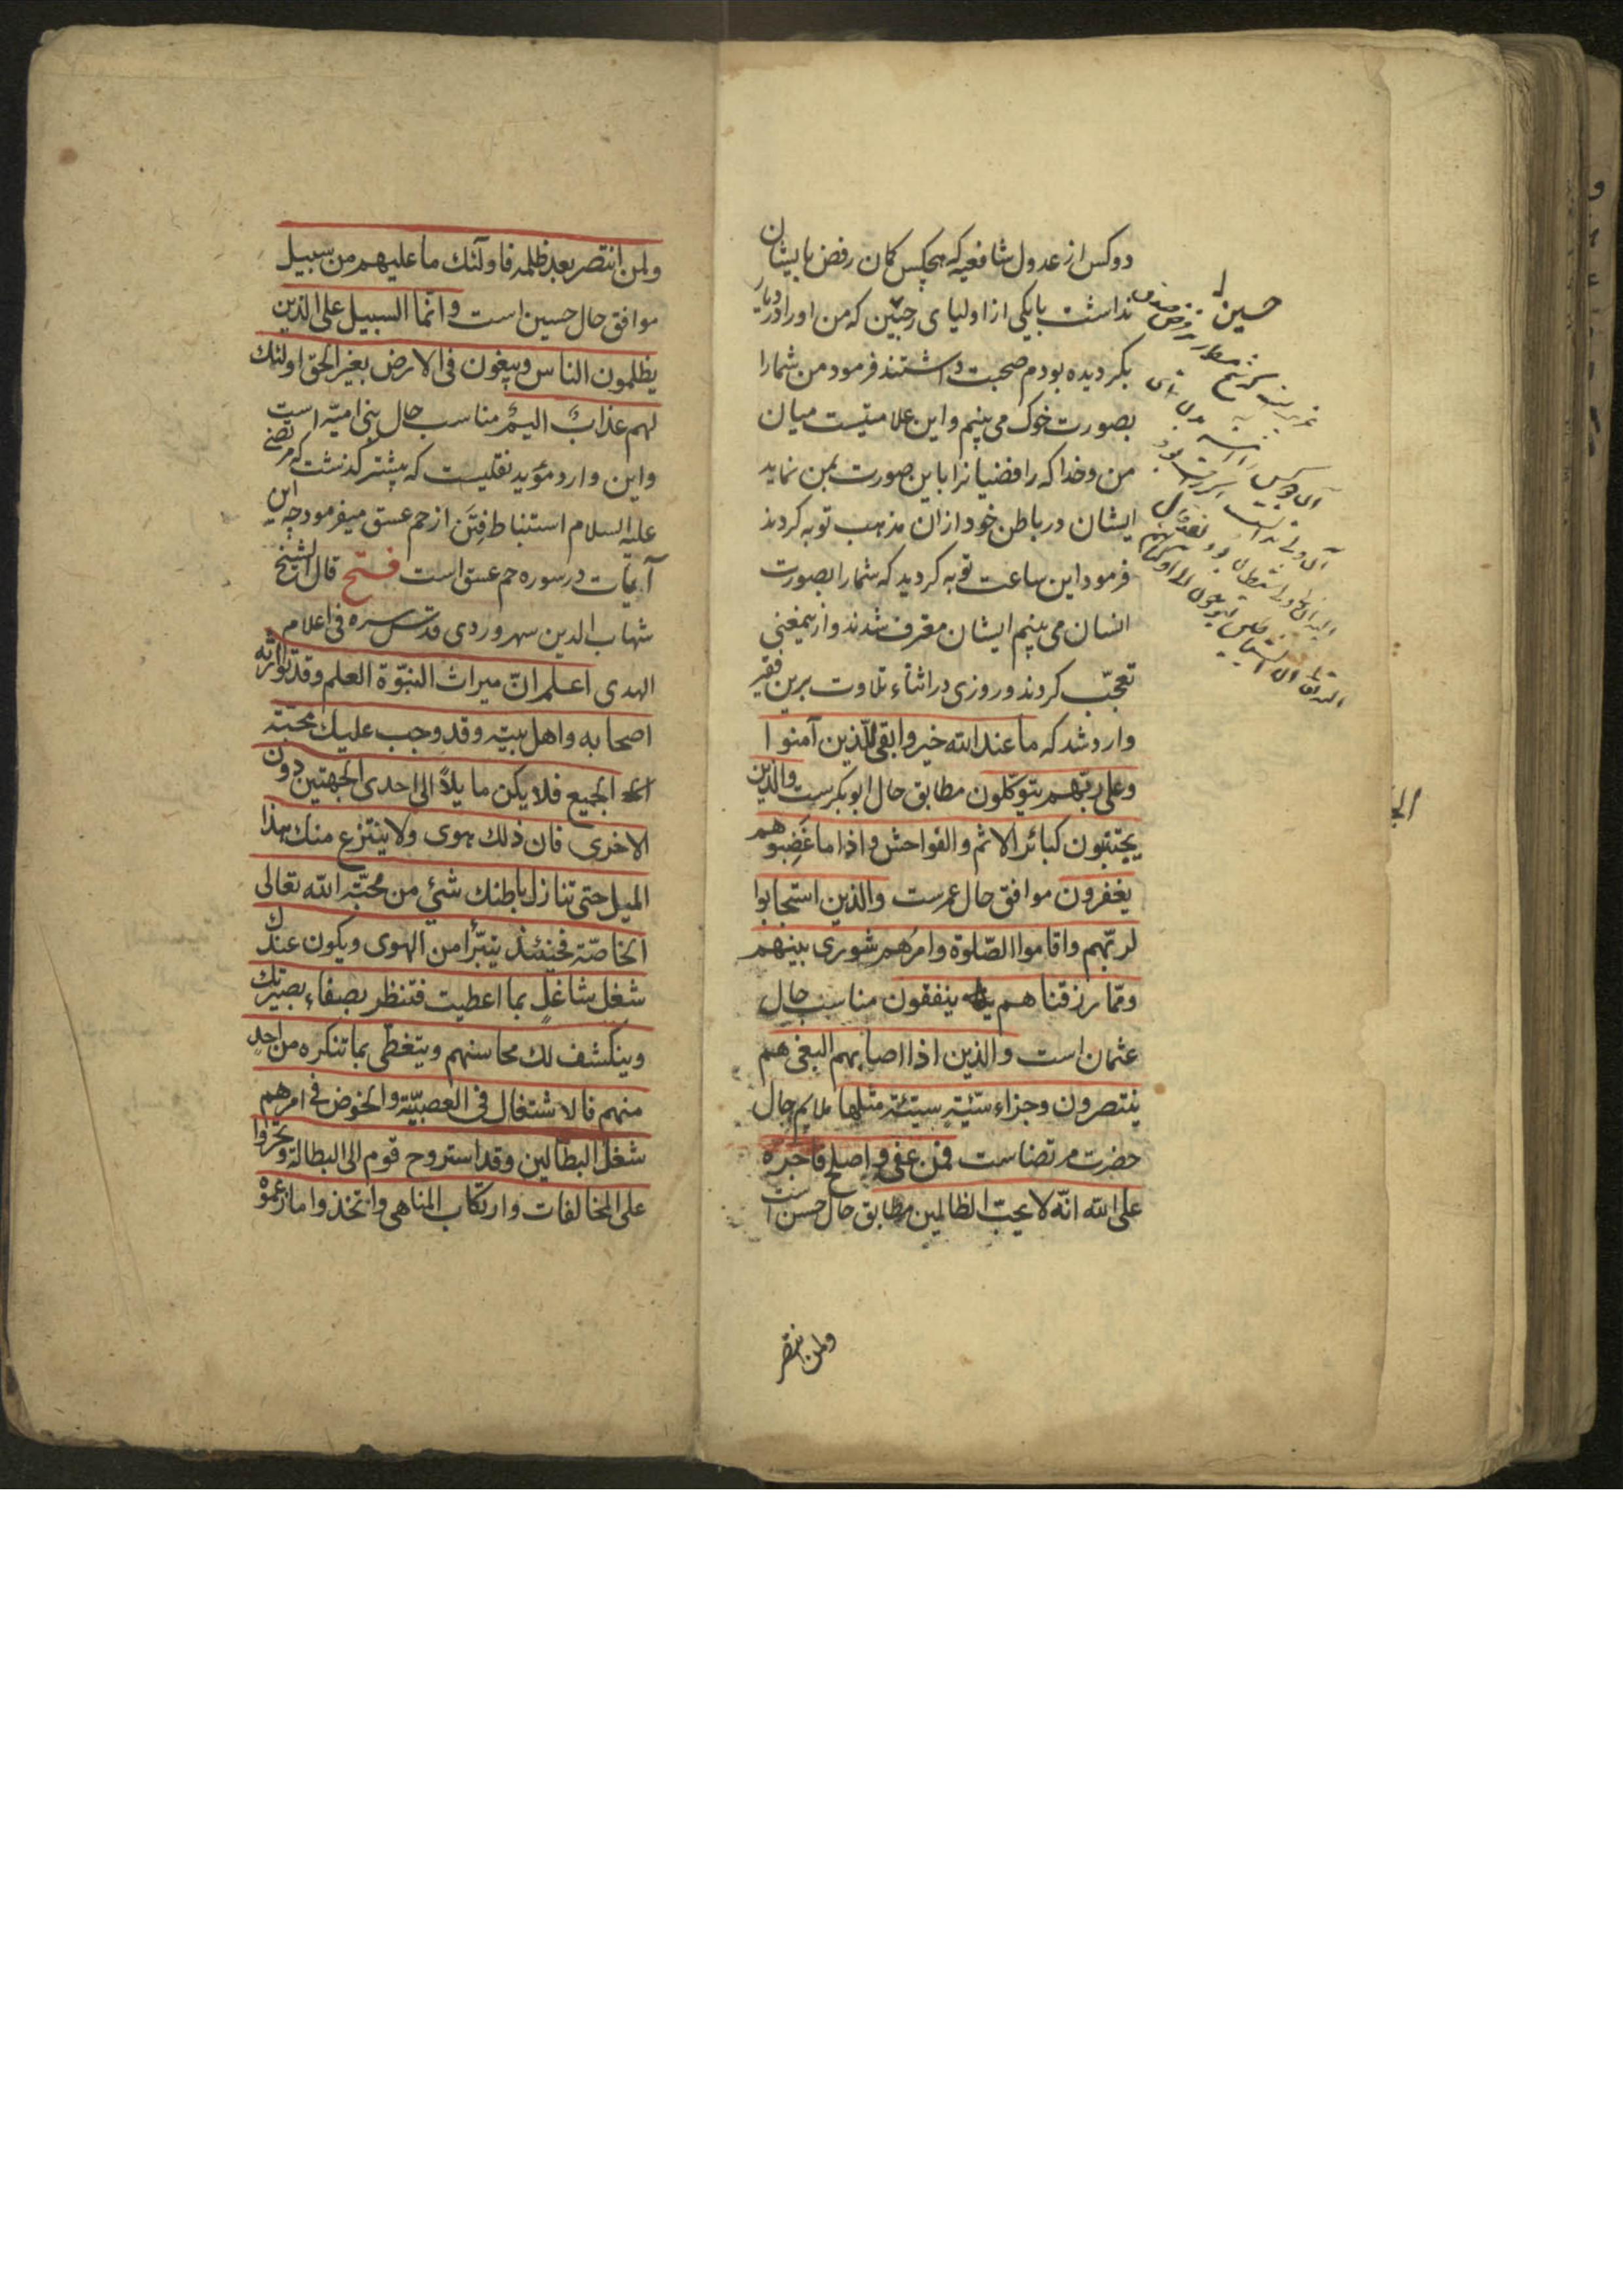 دو کس از عدول شافعیه که هیچکس کمان رفض بایشان
نداشت بایکی از اولیای رجبیّین که من او را در دیار
بکر دیده بودم صحبت داشتند فرمود من شما را
بصورت خوک می بینم و این علامتیست میان
من و خدا که رافضیانرا باین صورت بمن نماید
ایشان در باطن خود از ان مذهب توبه کردند
فرمود این ساعت توبه کردید که شما را بصورت
انسان می بینم ایشان معترف شدند و از ینمعنی
تعجّب کردند و روزی در اثناء تلاوت برین فقیر
وارد شد که ما عند الله خیر وابقی للّذین آمنوا
وعلی ربّهم یتوکّلون مطابق حال ابوبکرست والذین
یجتنبون کبائر الاثم والفواحش واذا ما غَضِبوا هم
یغفرون موافق حال عمرست والذین استجابوا
لربّهم واقاموا الصّلوة وامرُهم شوری بینهم
وممّا رزقناهم ینفقون مناسب حال
عثمان است والذین اذا اصابهم البغی هم
ینتصرون وجزاء سیّئة سیّئة مثلها ملایم حال
حضرت مرتضاست فمن عفی واصلح فاجره
علی الله انّه لا یحبّ الظالمین مطابق حال حسن است
ولمن انتصر
حسین
ولمن انتصر بعد ظلمه فاولٓئك ما علیهم من سبیل
موافق حال حسین است وانّما السبیل علی الذین
یظلمون الناس ویبغون فی الارض بغیر الحق اولئك
لهم عذابٌ الیمٌ مناسب حال بنی امیّه است
و این وارد مؤید نقلیست که پیشتر کذشت که مرتضی
علیه السلام استنباط فِتَن از حم عسق میفرمود چه این
آیات در سوره حم عسق است فتح قال الشیخ
شهاب الدین سهروردی قدّس سره فی اعلام
الهدی اعلم انّ میراث النبوّة العلم وقد توارثه
اصحابه واهل بیته وقد وجب علیك محبّة
الجمیع فلا یکن مایلاً الی احدی الجهتین دون
الاخری فان ذلك هوی ولا ینتزع منك هذا
المیل حتی تنازل باطنك شئ من محبّة الله تعالی
الخاصّة فحینئذ یتبرّأ من الهوی ویکون عندك
شغل شاغل بما اعطیت فتنظر بصفاء بصیرتك
وینکشف لك محاسنهم ویتغطّی بما تنکره من احدٍ
منهم فالاشتغال فی العصبیّة والخوض فی امرهم
شغل البطّالین وقد استروح قوم الی البطالة وتجرّوا
علی المخالفات وارتکاب المناهی واتخذوا ما زعموه